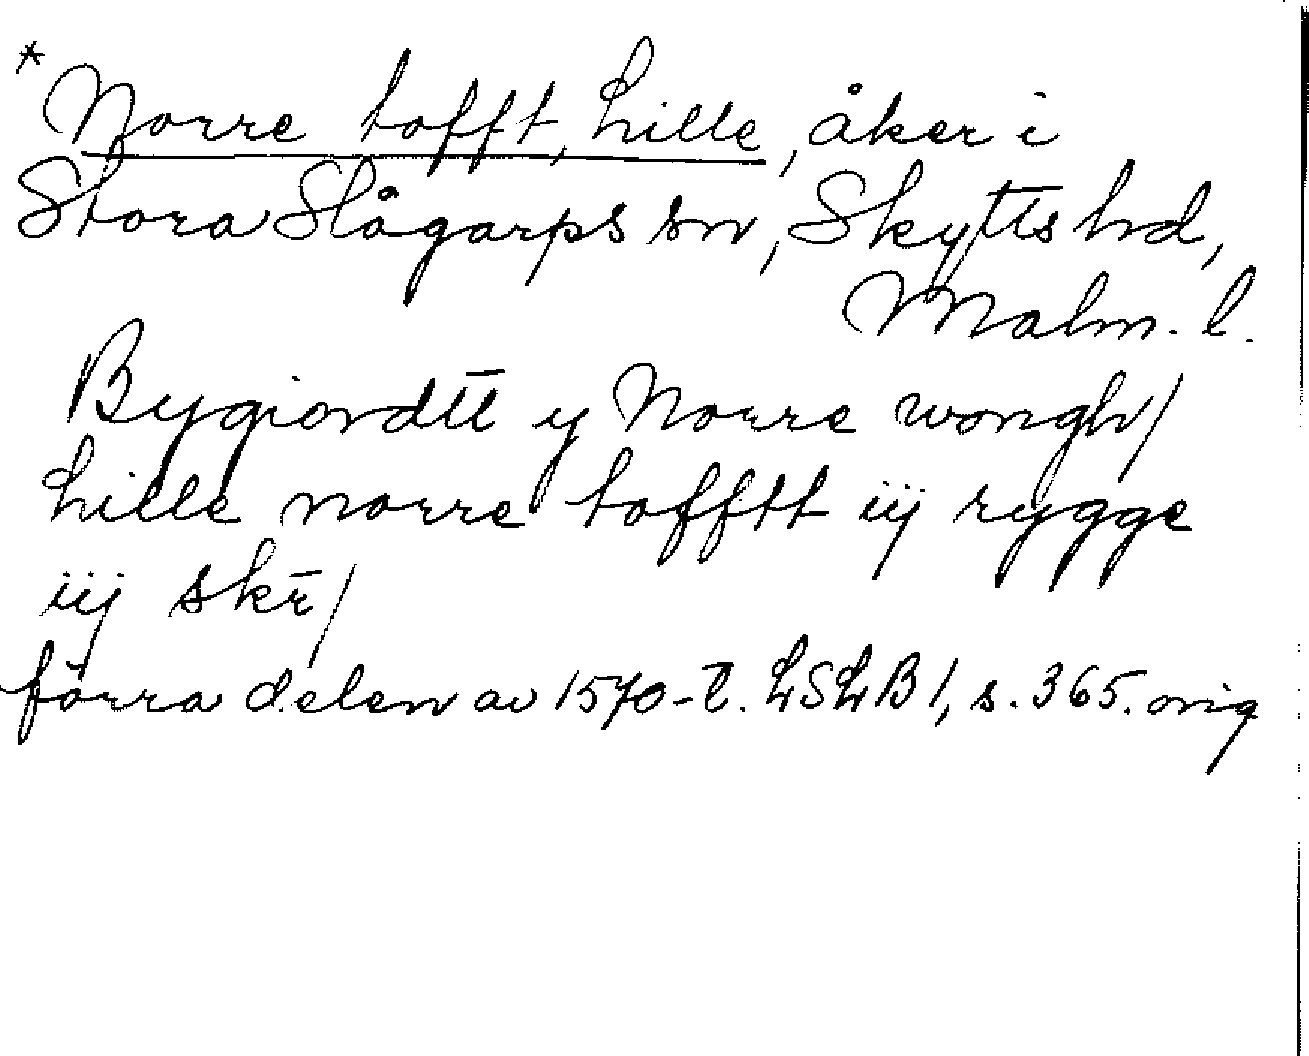 * Norre tofft, Lille, åker i
Stora Slågarps sn, Skytts hd,
Malm. l.
Bygiordtt y Norre wongh/
Lille norre tofftt iij rygge
iij skr̄/
förra delen av 1570-t. LSLB 1, s. 365. orig